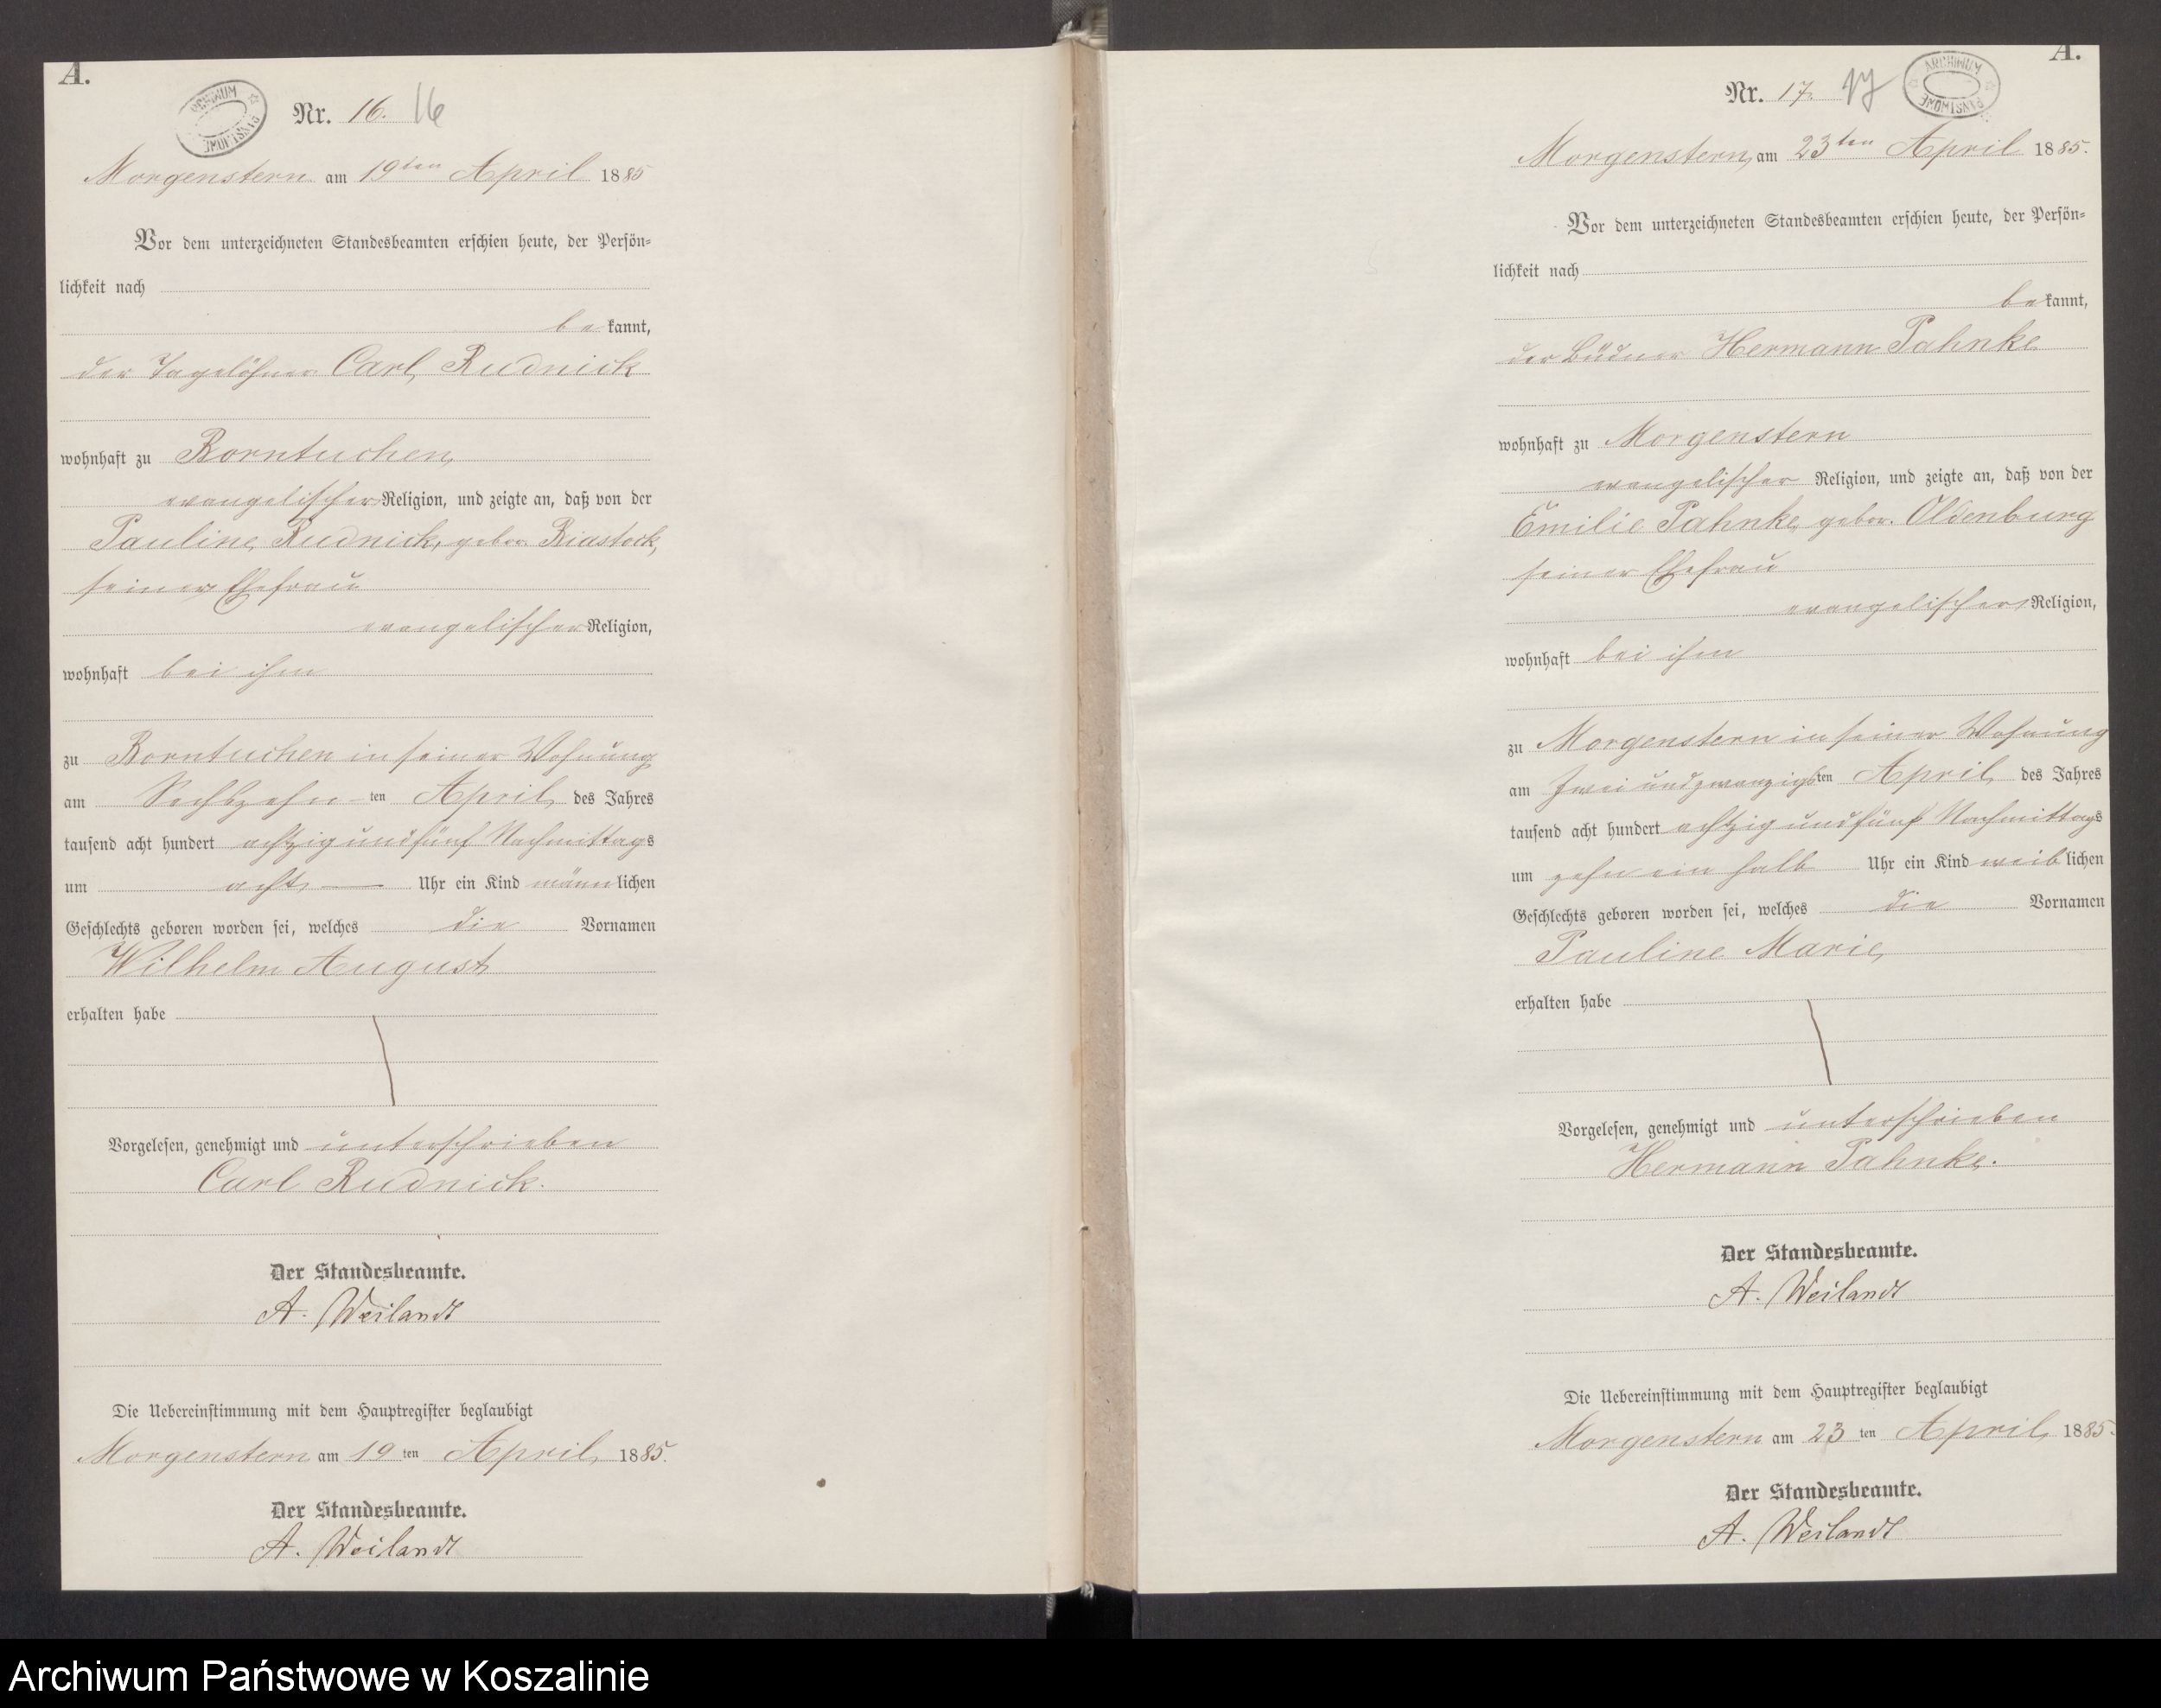 A.
ARCHIWUM PAŃSTWOWE
Nr. 16. 16
Morgenstern am 19ten April 1885
Vor dem unterzeichneten Standesbeamten erschien heute, der Persön-
lichkeit nach
bekannt,
der Tagelöhner Carl Rudnick
wohnhaft zu Borntuchen,
evangelischer Religion, und zeigte an, daß von der
Pauline Rudnick, gebor. Riastock,
seiner Ehefrau
evangelischer Religion,
wohnhaft bei ihm
zu Borntuchen in seiner Wohnung
am Sechszehn-ten April des Jahres
tausend acht hundert achtzig und fünf Nachmittags
um acht — Uhr ein Kind männlichen
Geschlechts geboren worden sei, welches die Vornamen
Wilhelm August
erhalten habe
Vorgelesen, genehmigt und unterschrieben
Carl Rudnick.
Der Standesbeamte.
A. Weilandt
Die Uebereinstimmung mit dem Hauptregister beglaubigt
Morgenstern am 19ten April 1885.
Der Standesbeamte.
A. Weilandt
A.
ARCHIWUM PAŃSTWOWE
Nr. 17. 17
Morgenstern, am 23ten April 1885.
Vor dem unterzeichneten Standesbeamten erschien heute, der Persön-
lichkeit nach
bekannt,
der Büdner Hermann Pahnke
wohnhaft zu Morgenstern
evangelischer Religion, und zeigte an, daß von der
Emilie Pahnke, gebor. Oldenburg
seiner Ehefrau
evangelischer Religion,
wohnhaft bei ihm
zu Morgenstern in seiner Wohnung
am Zwei und zwanzigsten April des Jahres
tausend acht hundert achtzig und fünf Nachmittags
um zehn ein halb Uhr ein Kind weiblichen
Geschlechts geboren worden sei, welches die Vornamen
Pauline Marie,
erhalten habe
Vorgelesen, genehmigt und unterschrieben
Hermann Pahnke.
Der Standesbeamte.
A. Weilandt
Die Uebereinstimmung mit dem Hauptregister beglaubigt
Morgenstern am 23ten April 1885.
Der Standesbeamte.
A. Weilandt
Archiwum Państwowe w Koszalinie